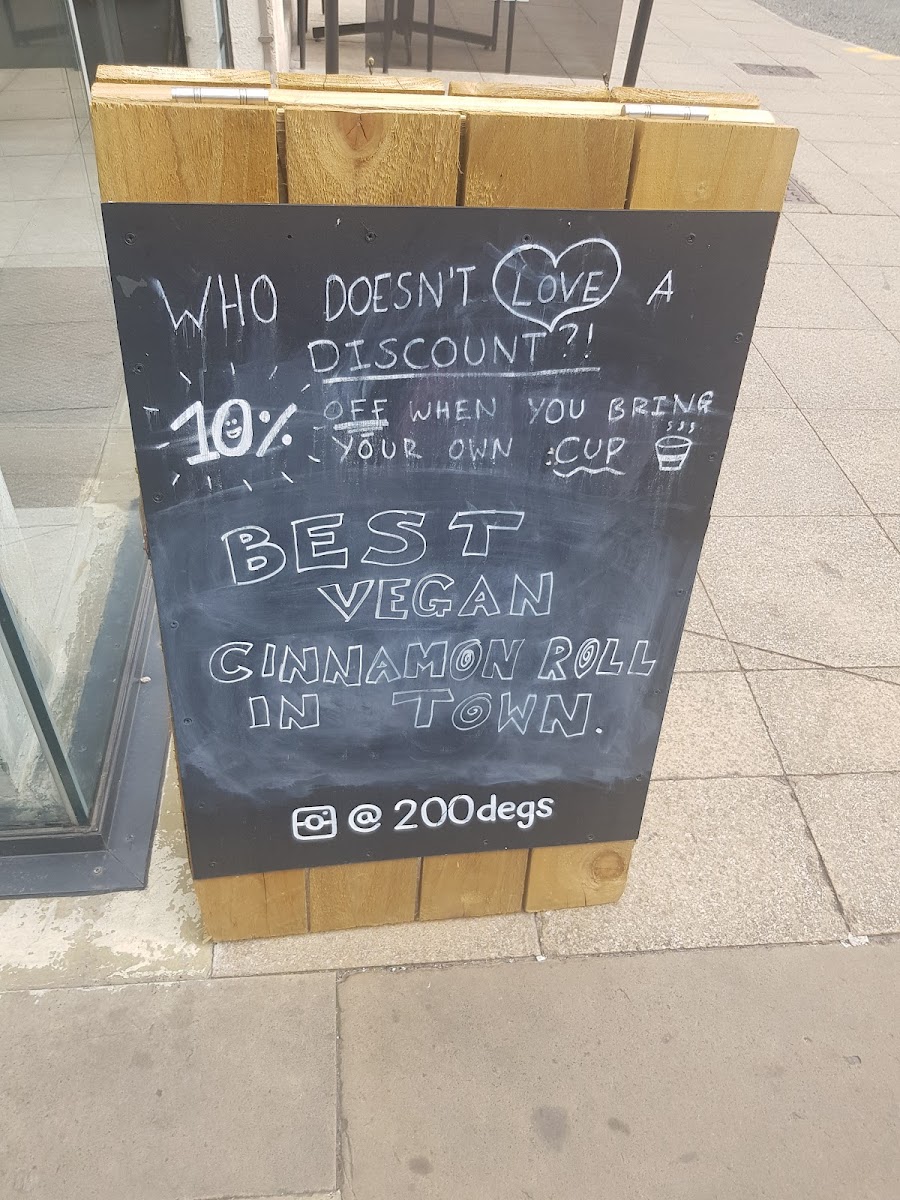 WHO DOESN'T LOVE A
DISCOUNT?!
10% OFF WHEN YOU BRING
YOUR OWN CUP
BEST
VEGAN
CINNAMON ROLL
IN TOWN.
@200degs